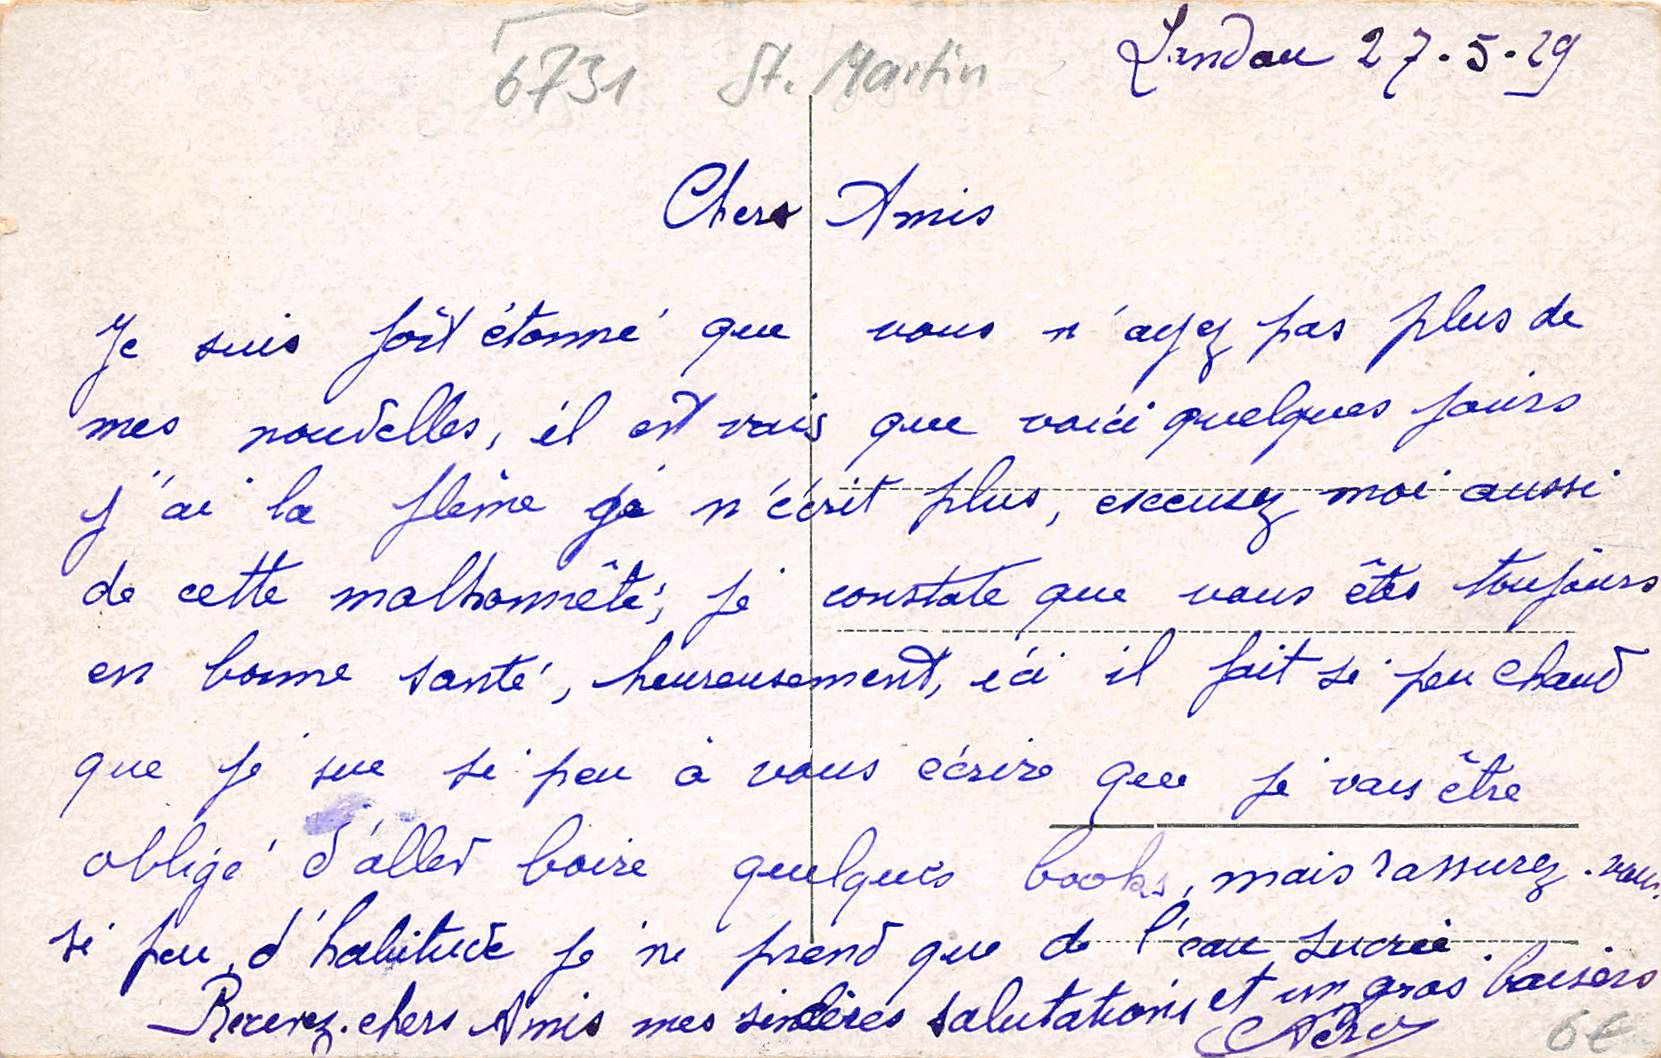 6731 St. Martin
Landau 27-5-29
Chers Amis
Je suis fort étonné que vous n'ayez pas plus de
mes nouvelles, il est vrais que voici quelques jours
j'ai la flême je n'écrit plus, excusez moi aussi
de cette malhonnêté, je constate que vous êtes toujours
en bonne santé, heureusement, ici il fait si peu chaud
que je sue si peu à vous écrire que je vais être
obligé d'aller boire quelques books, mais rassurez-vous,
si peu d'habitude je ne prend que de l'eau sucrée
Recevez chers Amis mes sincères salutations et un gros baisers
6€